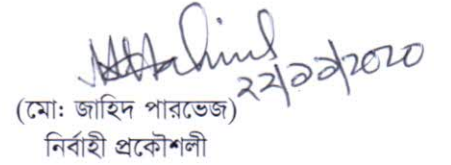 ২২/১১/২০২০
(মোঃ জাহিদ পারভেজ)
নির্বাহী প্রকৌশলী